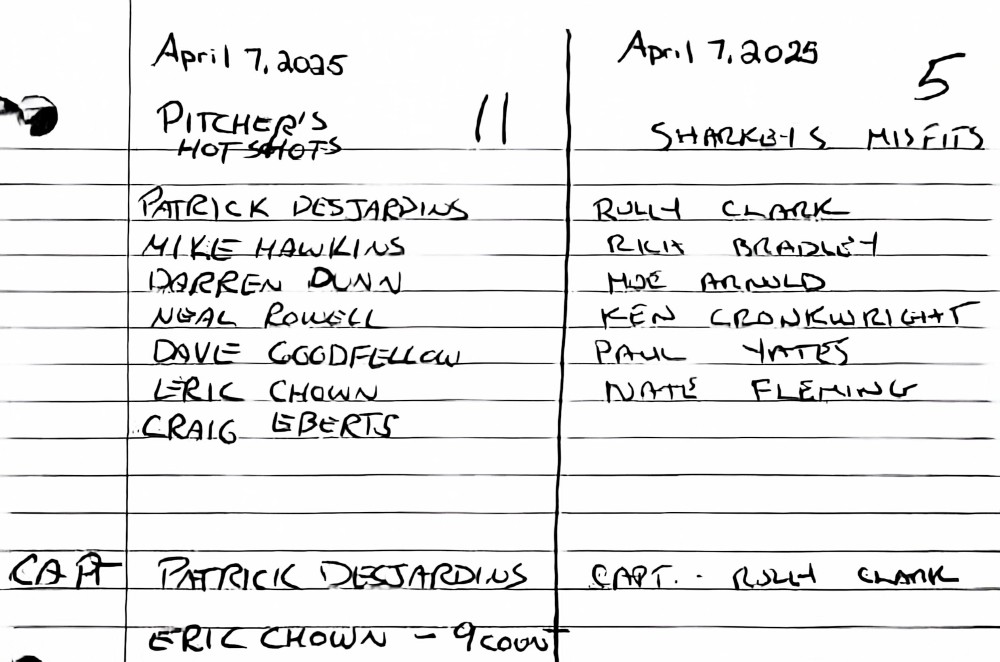 April 7, 2025
PITCHER'S 11
HOT SHOTS
PATRICK DESJARDINS
MIKE HAWKINS
DARREN DUNN
NEAL ROWELL
DAVE GOODFELLOW
ERIC CHOWN
CRAIG EBERTS
CAPT PATRICK DESJARDINS
ERIC CHOWN - 9 COUNT
April 7, 2025
5
SHARKEY'S MISFITS
RULLY CLARK
RICH BRADLEY
MOE ARNOLD
KEN CRONKWRIGHT
PAUL YATES
NATE FLEMING
CAPT. - RULLY CLARK